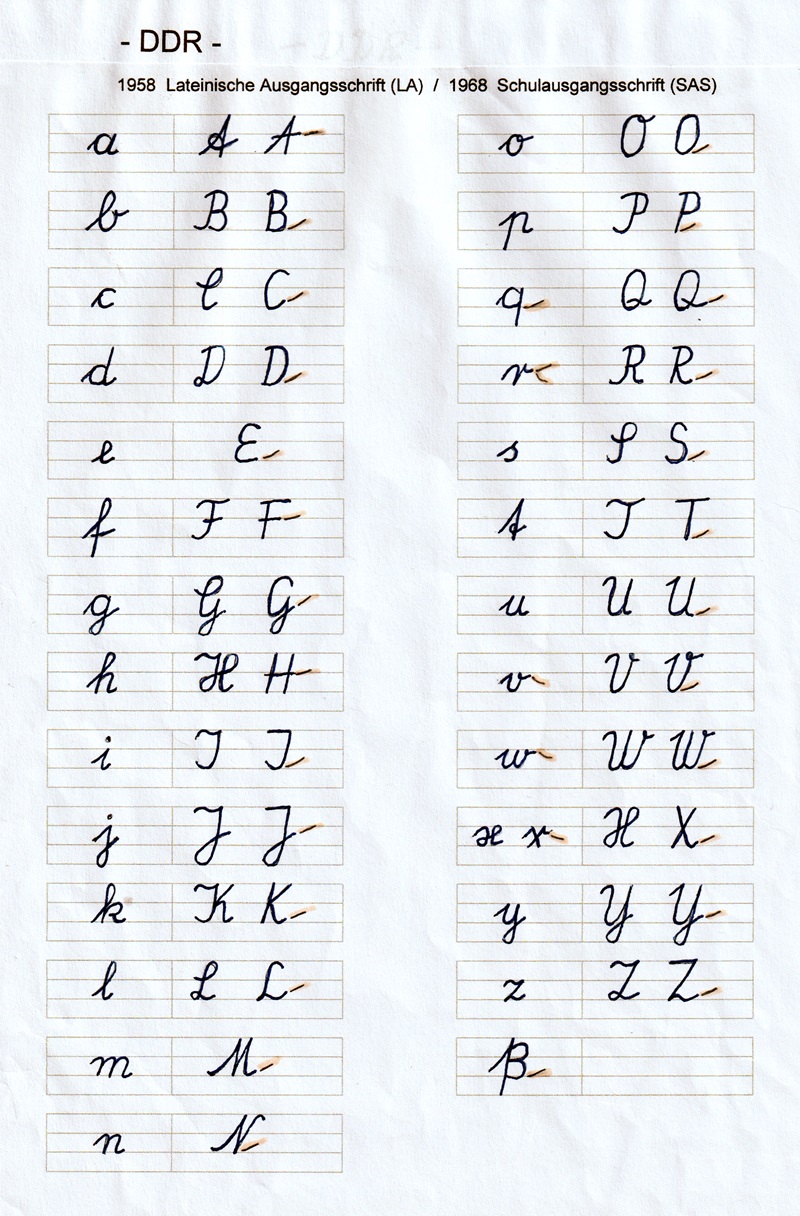 - DDR -
1958 Lateinische Ausgangsschrift (LA) / 1968 Schulausgangsschrift (SAS)
a A A
b B B
c C C
d D D
e E
f F F
g G G
h H H
i I I
j J J
k K K
l L L
m M
n N
o O O
p P P
q Q Q
r R R
s S S
t T T
u U U
v V V
w W W
x x X X
y Y Y
z Z Z
ß